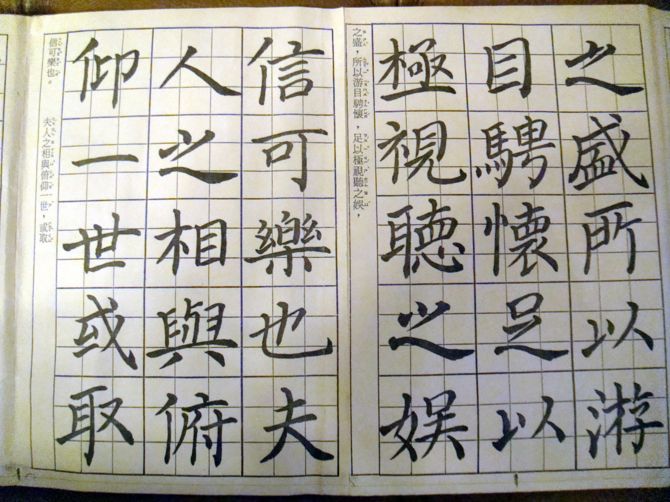 之盛所以游
目騁懷足以
極視聽之娛
之盛，所以游目騁懷，足以極視聽之娛，
信可樂也夫
人之相與俯
仰一世或取
信可樂也。
夫人之相與俯仰一世，或取